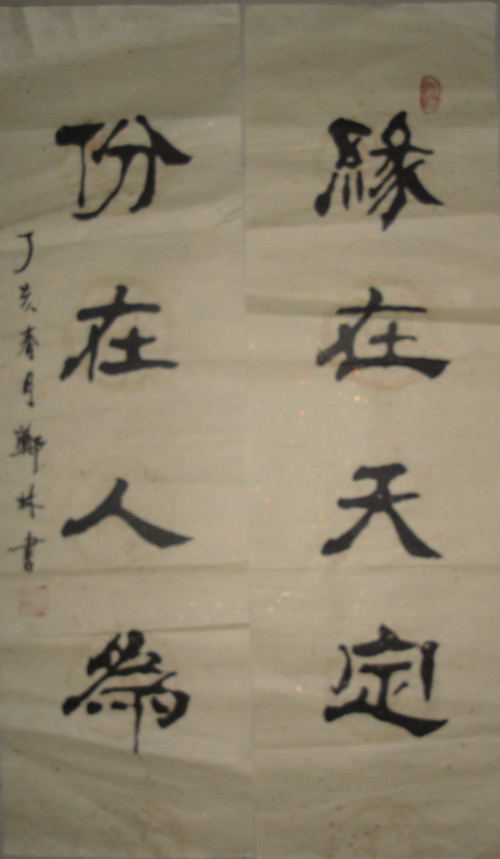 緣在天定
份在人為
丁亥春月鄭林書